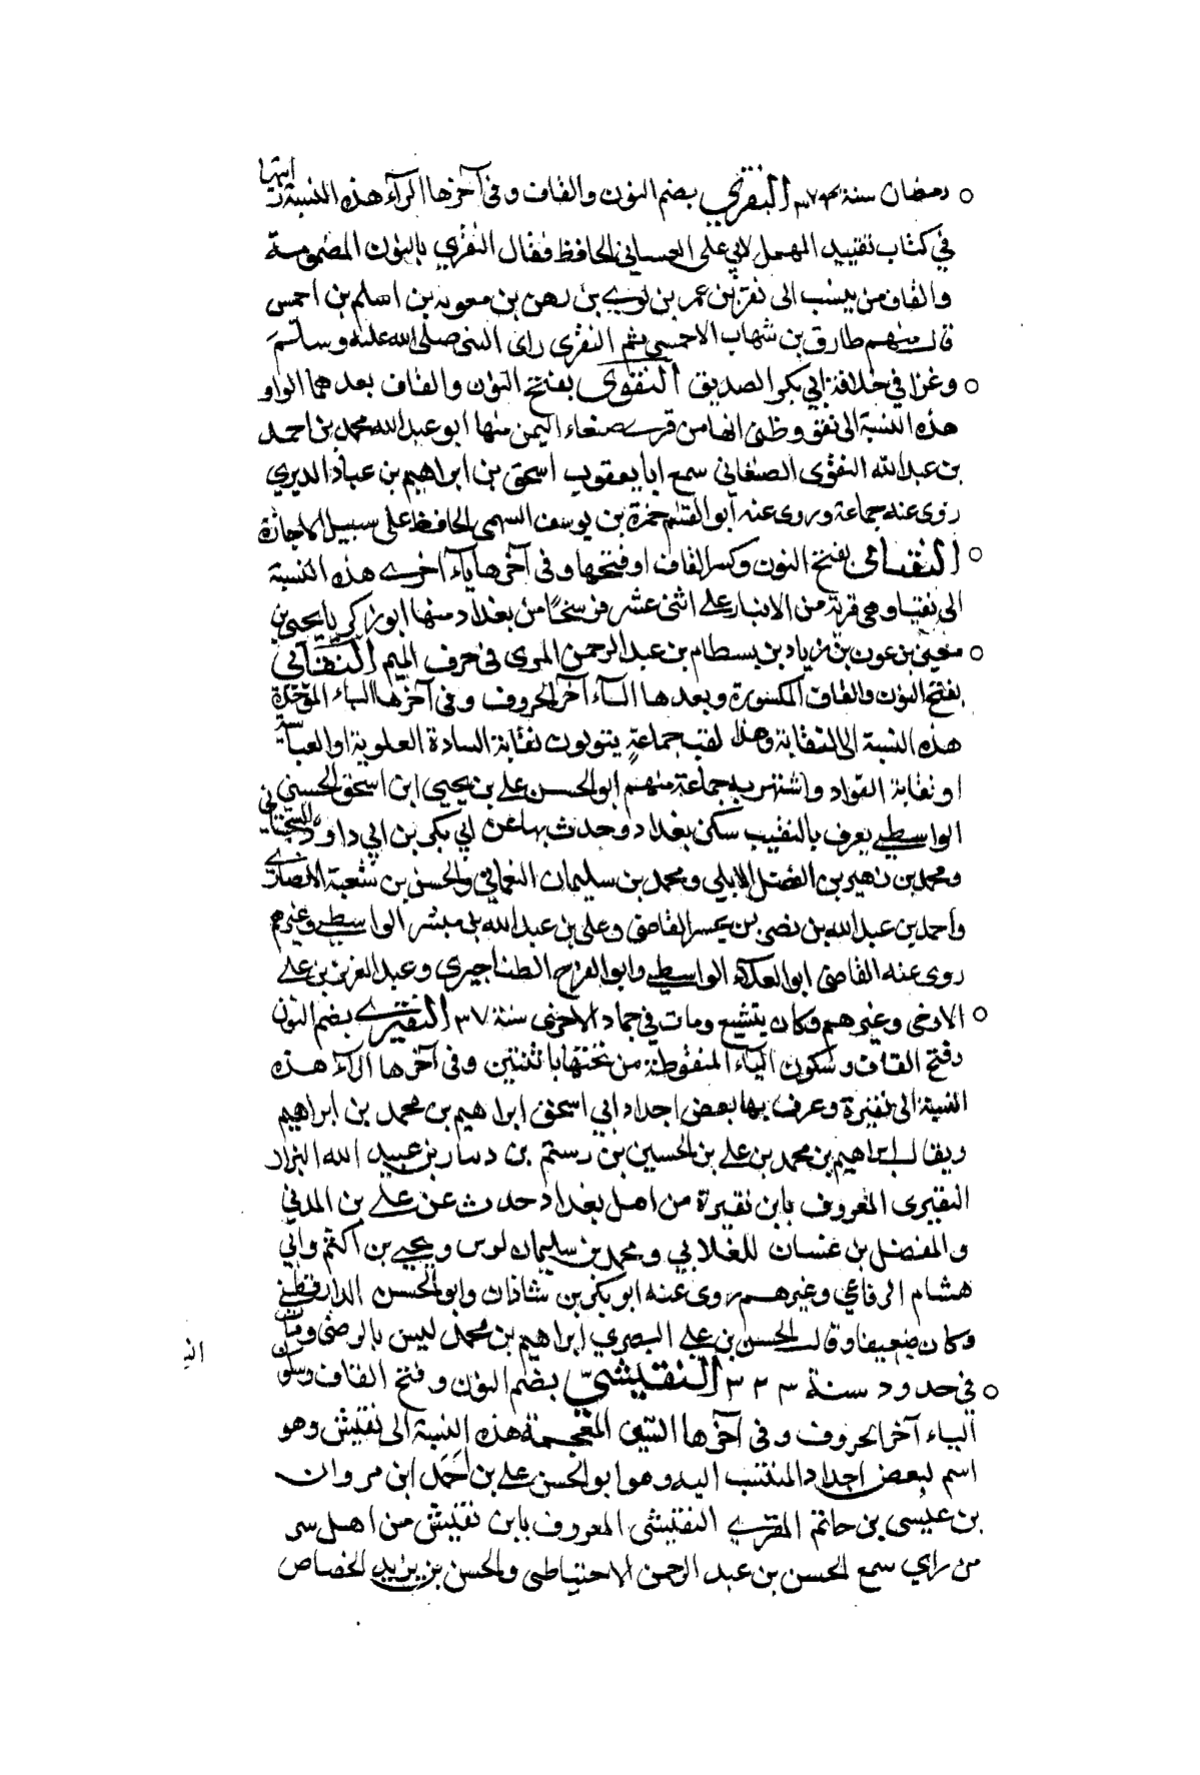 رمضان سنة ٣٧٤ النقري بضم النون والقاف وفي آخرها الراء هذه النسبة رايتها
في كتاب تقييد المهمل لابي على الغساني الحافظ فقال النقري بالنون المضمومة
والقاف من ينسب الى نقر بن عمر بن لوي بن رهن بن معوية بن اسلم بن احمس
قال منهم طارق بن شهاب الاحمسي ثم النقرى راى النبي صلى الله عليه وسلم
وغزا في خلافة ابي بكر الصديق النقوى بفتح النون والقاف بعدهما الواو
هذه النسبة الى نقو وظني انها من قرى صنعاء اليمن منها ابو عبد الله محمد بن احمد
بن عبد الله النقوى الصنعاني سمع ابا يعقوب اسحق بن ابراهيم بن عباد الدبري
روى عنه جماعة وروى عنه ابو القسم حمزة بن يوسف السهمي الحافظ على سبيل الاجازة
النقيائي بفتح النون وكسر القاف او فتحها وفي آخرها ياء آخرى هذه النسبة
الى نقيا وهي قرية من الانبار على اثنى عشر فرسخا من بغداد منها ابو زكريا يحيى بن
معين بن عون بن زياد بن بسطام بن عبد الرحمن المرى في حرف الميم النقابي
بفتح النون والقاف المكسورة وبعدها الياء آخر الحروف وفي آخرها الباء الموحدة
هذه النسبة الى النقابة وهذا لقب جماعة يتولون نقابة السادة العلوية او العباسية
او نقابة القواد واشتهر به جماعة منهم ابو الحسن على بن يحيى ابن اسحق الحسني
الواسطي يعرف بالنقيب سكن بغداد وحدث بها عن ابي بكر بن ابي داود السجستاني
ومحمد بن زهير بن الفضل الابلي ومحمد بن سليمان النعماني والحسن بن شعبة الانصاري
واحمد بن عبد الله بن نصر بن بحير القاضي وعلي بن عبد الله بن مبشر الواسطي وغيرهم
روى عنه القاضي ابو العلاء الواسطي وابو الفرج الطناجيري وعبد العزيز بن على
الازجي وغيرهم وكان يتشيع ومات في جماد الاخرى سنة ٣٧ النقيري بضم النون
وفتح القاف وسكون الياء المنقوطة من تحتها باثنتين وفي آخرها الراء هذه
النسبة الى نقيرة وعرف بها بعض اجداد ابي اسحق ابراهيم بن محمد بن ابراهيم
ويقال ابراهيم بن محمد بن على بن الحسين بن رستم بن دينار بن عبيد الله البزاز
النقيرى المعروف بابن نقيرة من اهل بغداد حدث عن على بن المدني
والمفضل بن غسان الغلابي ومحمد بن سليمان لوين ويحيى بن اكثم وابي
هشام الرفاعي وغيرهم روى عنه ابو بكر بن شاذان وابو الحسن الدارقطني
وكان ضعيفا وقال الحسن بن علي البصري ابراهيم بن محمد ليس بالرضى ومات
في حدود سنة ٣٢٣ النقيشي بضم النون وفتح القاف وسكون
الياء آخر الحروف وفي آخرها الشين المعجمة هذه النسبة الى نقيش وهو
اسم لبعض اجداد المنتسب اليه وهو ابو الحسن على بن احمد ابن مروان
بن عيسى بن حاتم المقرى النقيشى المعروف بابن نقيش من اهل سر
من راي سمع الحسن بن عبد الرحمن الاحتياطي والحسن بن يزيد الخصاص